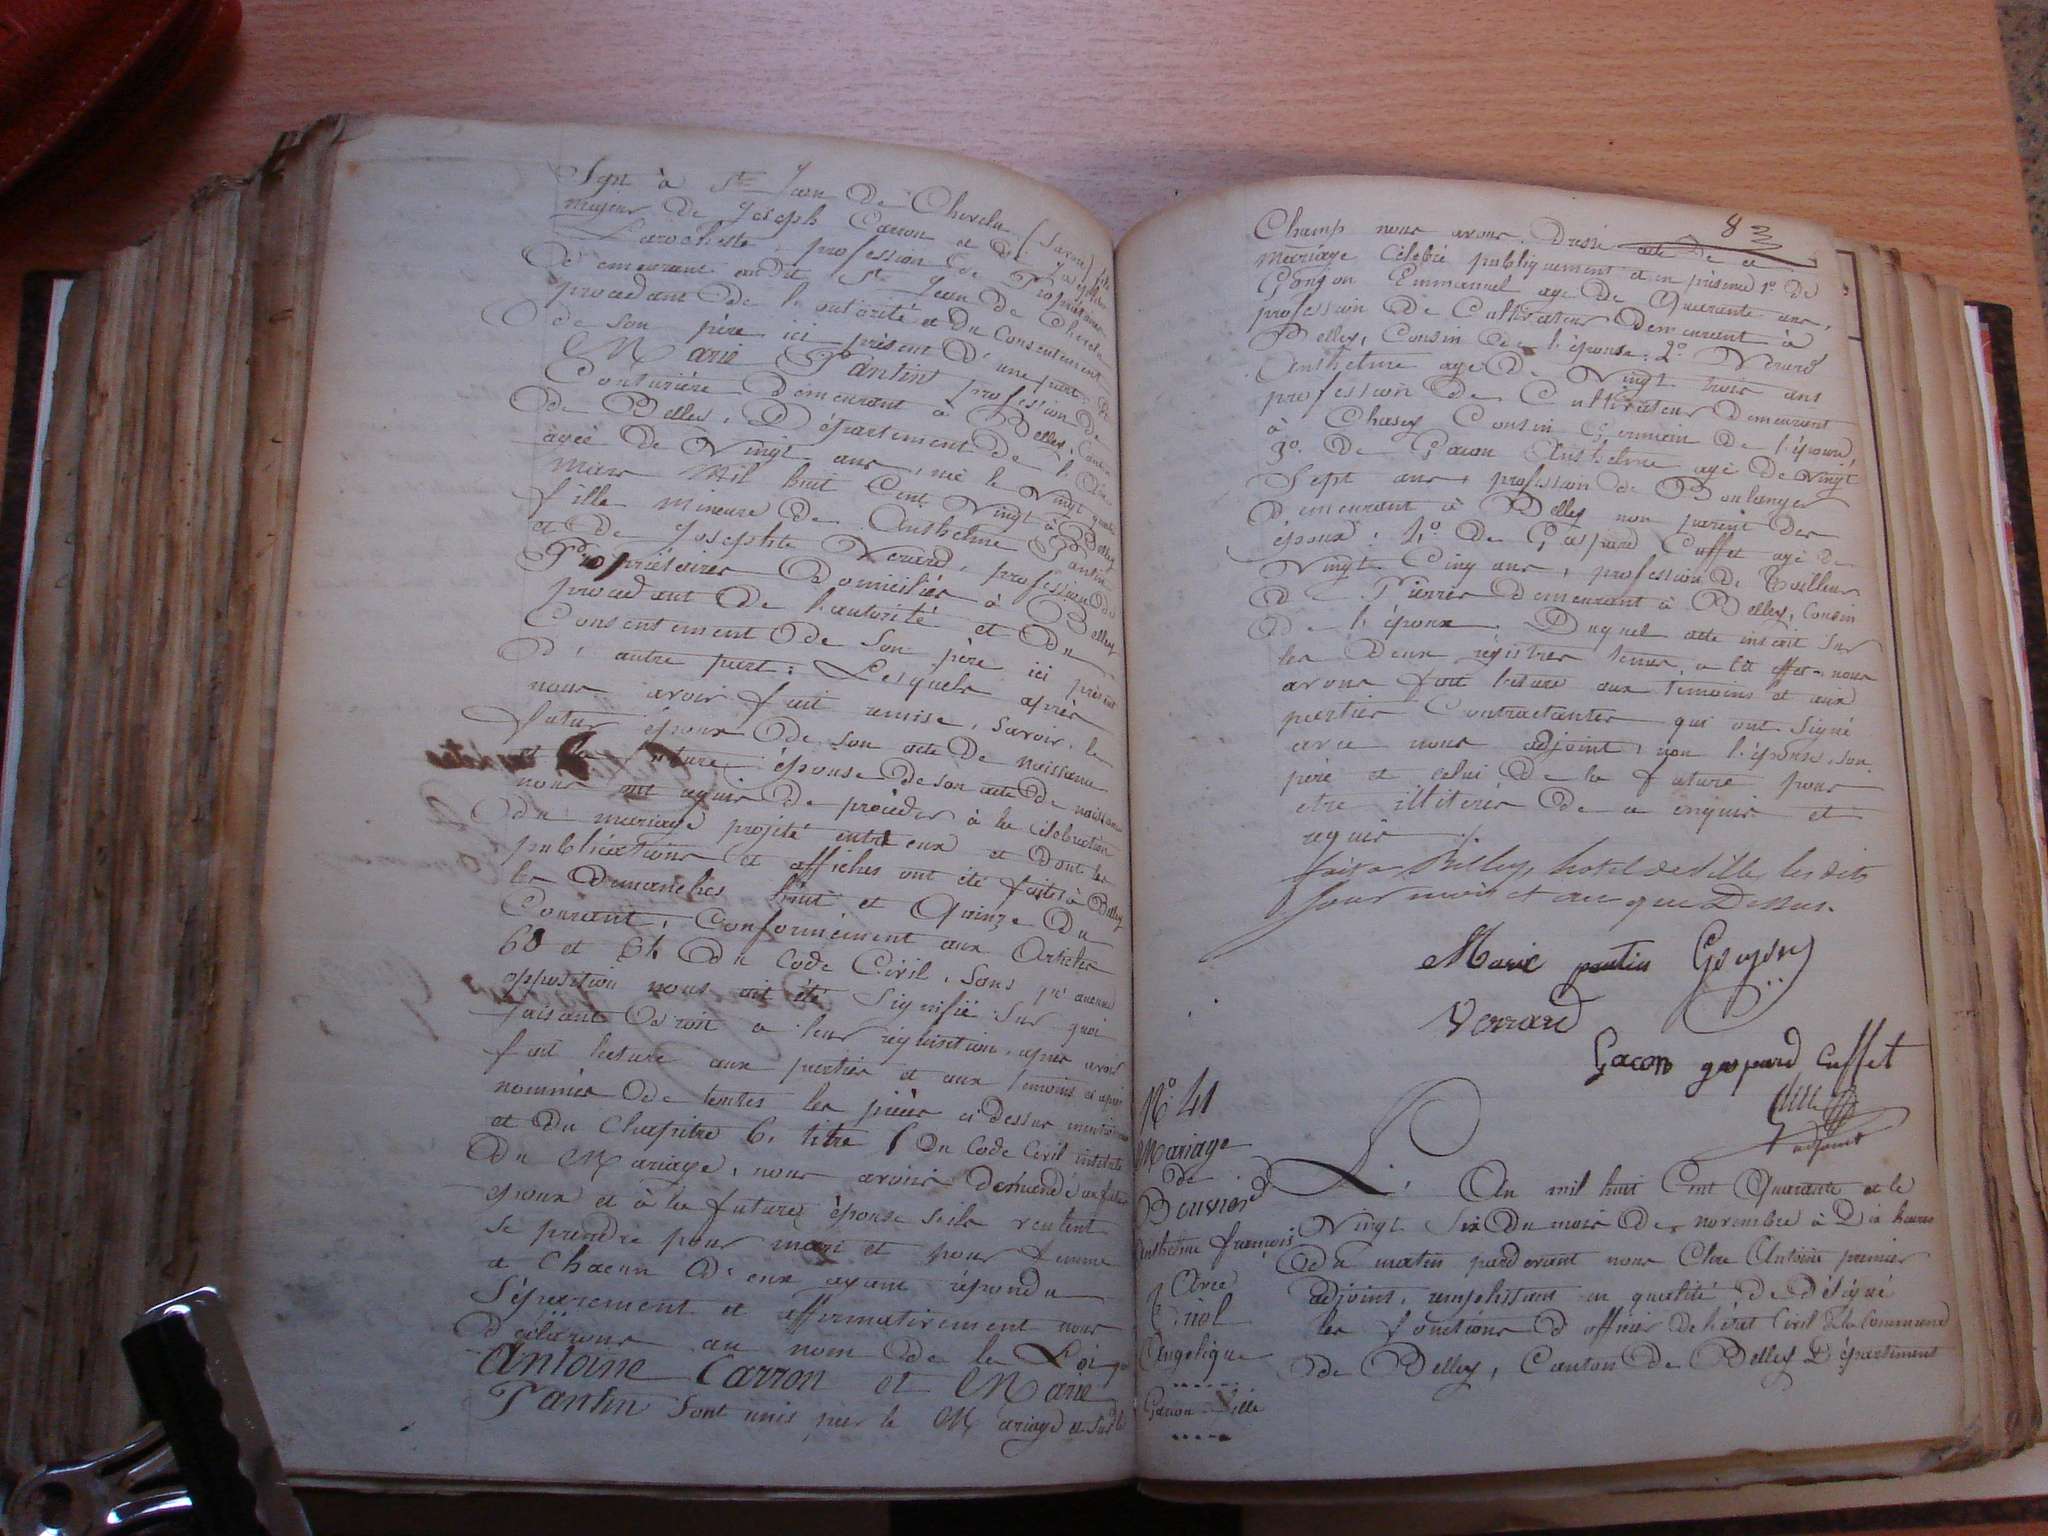 Sept à St Jean de Chevelu (Savoie) fils
majeur de Joseph Carron et de Josephte
Larochette, profession de Propriétaires
demeurant audit St Jean de Chevelu
procédant de l'autorité et du consentement
de son père ici présent d'une part, et
Marie Pantin profession de
Couturière demeurant à Belley, Canton
de Belley, Département de l'Ain
agée de Vingt ans, née le Vingt quatre
Mars Mil huit Cent Vingt à Belley
fille mineure de Anthelme Pantin
et de Josephte Verard, profession de
Propriétaires Domiciliés à Belley
procédant de l'autorité et du
Consentement de son père ici présent
D'autre part: Lesquels après
nous avoir fait remise, savoir, le
futur époux de son acte de naissance
et la future épouse de son acte de naissance
nous ont requis de procéder à la célébration
du mariage projeté entr'eux et dont les
publications et affiches ont été faites à Belley
les Demanches huit et Quinze du
Courant, Conformément aux Articles
63 et 64 du Code Civil, Sans qu'aucune
opposition nous ait été Signifié. Sur quoi
faisant droit à leur réquisition, apres avoir
fait lecture aux parties et aux témoins ci après
nommés de toutes les pièces ci dessus mentionnées
et du Chapitre 6, titre 5 du Code Civil intitulé
Du Mariage, nous avons demandé au futur
époux et à la future épouse s'ils veulent
se prendre pour mari et pour femme
et Chacun d'eux ayant répondu
Séparément et affirmativement nous
déclarons au nom de la Loi que
Antoine Carron et Marie
Pantin Sont unis par le Mariage et sur le
83
Champ nous avons Dressé acte de ce
mariage Célébré publiquement et en présence 1o de
Gonjon Emmanuel agé de Quarante ans,
profession de Cultivateur demeurant à
Belley, Cousin de l'épouse; 2o Verard
Anthelme agé de Vingt trois ans
profession de Cultivateur demeurant
à Chasey Cousin Germain de l'épouse,
3o De Gacon Anthelme agé de Vingt
Sept ans, profession de Boulanger
demeurant à Belley non parent des
époux; 4o de Gaspard Cuffet agé de
Vingt Cinq ans, profession de Tailleur
de Pierres demeurant à Belley, Cousin
de l'époux. Duquel acte inscrit sur
les deux régistres tenus à cet effet, nous
avons fait lecture aux témoins et aux
parties Contractantes qui ont signé
avec nous adjoint, non l'époux, son
père et celui de la future pour
etre illiterés de ce enquis et
requis
fait à Belley, hotel de Ville, les dits
Jour mois et an que Dessus.
Marie pantin Goujon
Verrard
Gacon gaspard Cuffet
adjoint
No 41
Mariage
de
Bouvier
Anthelme françois
Avec
Angelique
Garcon - Fille
L'An mil huit Cent Quarante et le
Vingt Six du mois de novembre à Dix heures
du matin pardevant nous Clerc Antoine premier
adjoint, remplissant en qualité de Délégué
les fonctions d'officier de l'état Civil de la Commune
de Belley, Canton de Belley Département